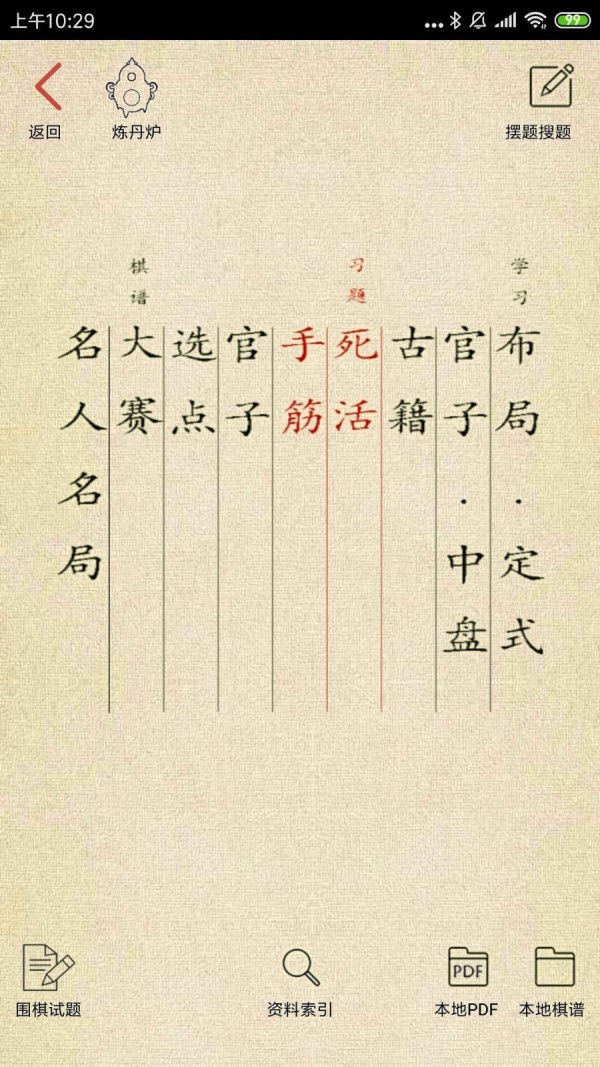 上午10:29
99
返回
炼丹炉
摆题搜题
学习
布局·定式
官子·中盘
古籍
习题
死活
手筋
官子
选点
棋谱
大赛
名人名局
围棋试题
资料索引
PDF
本地PDF
本地棋谱